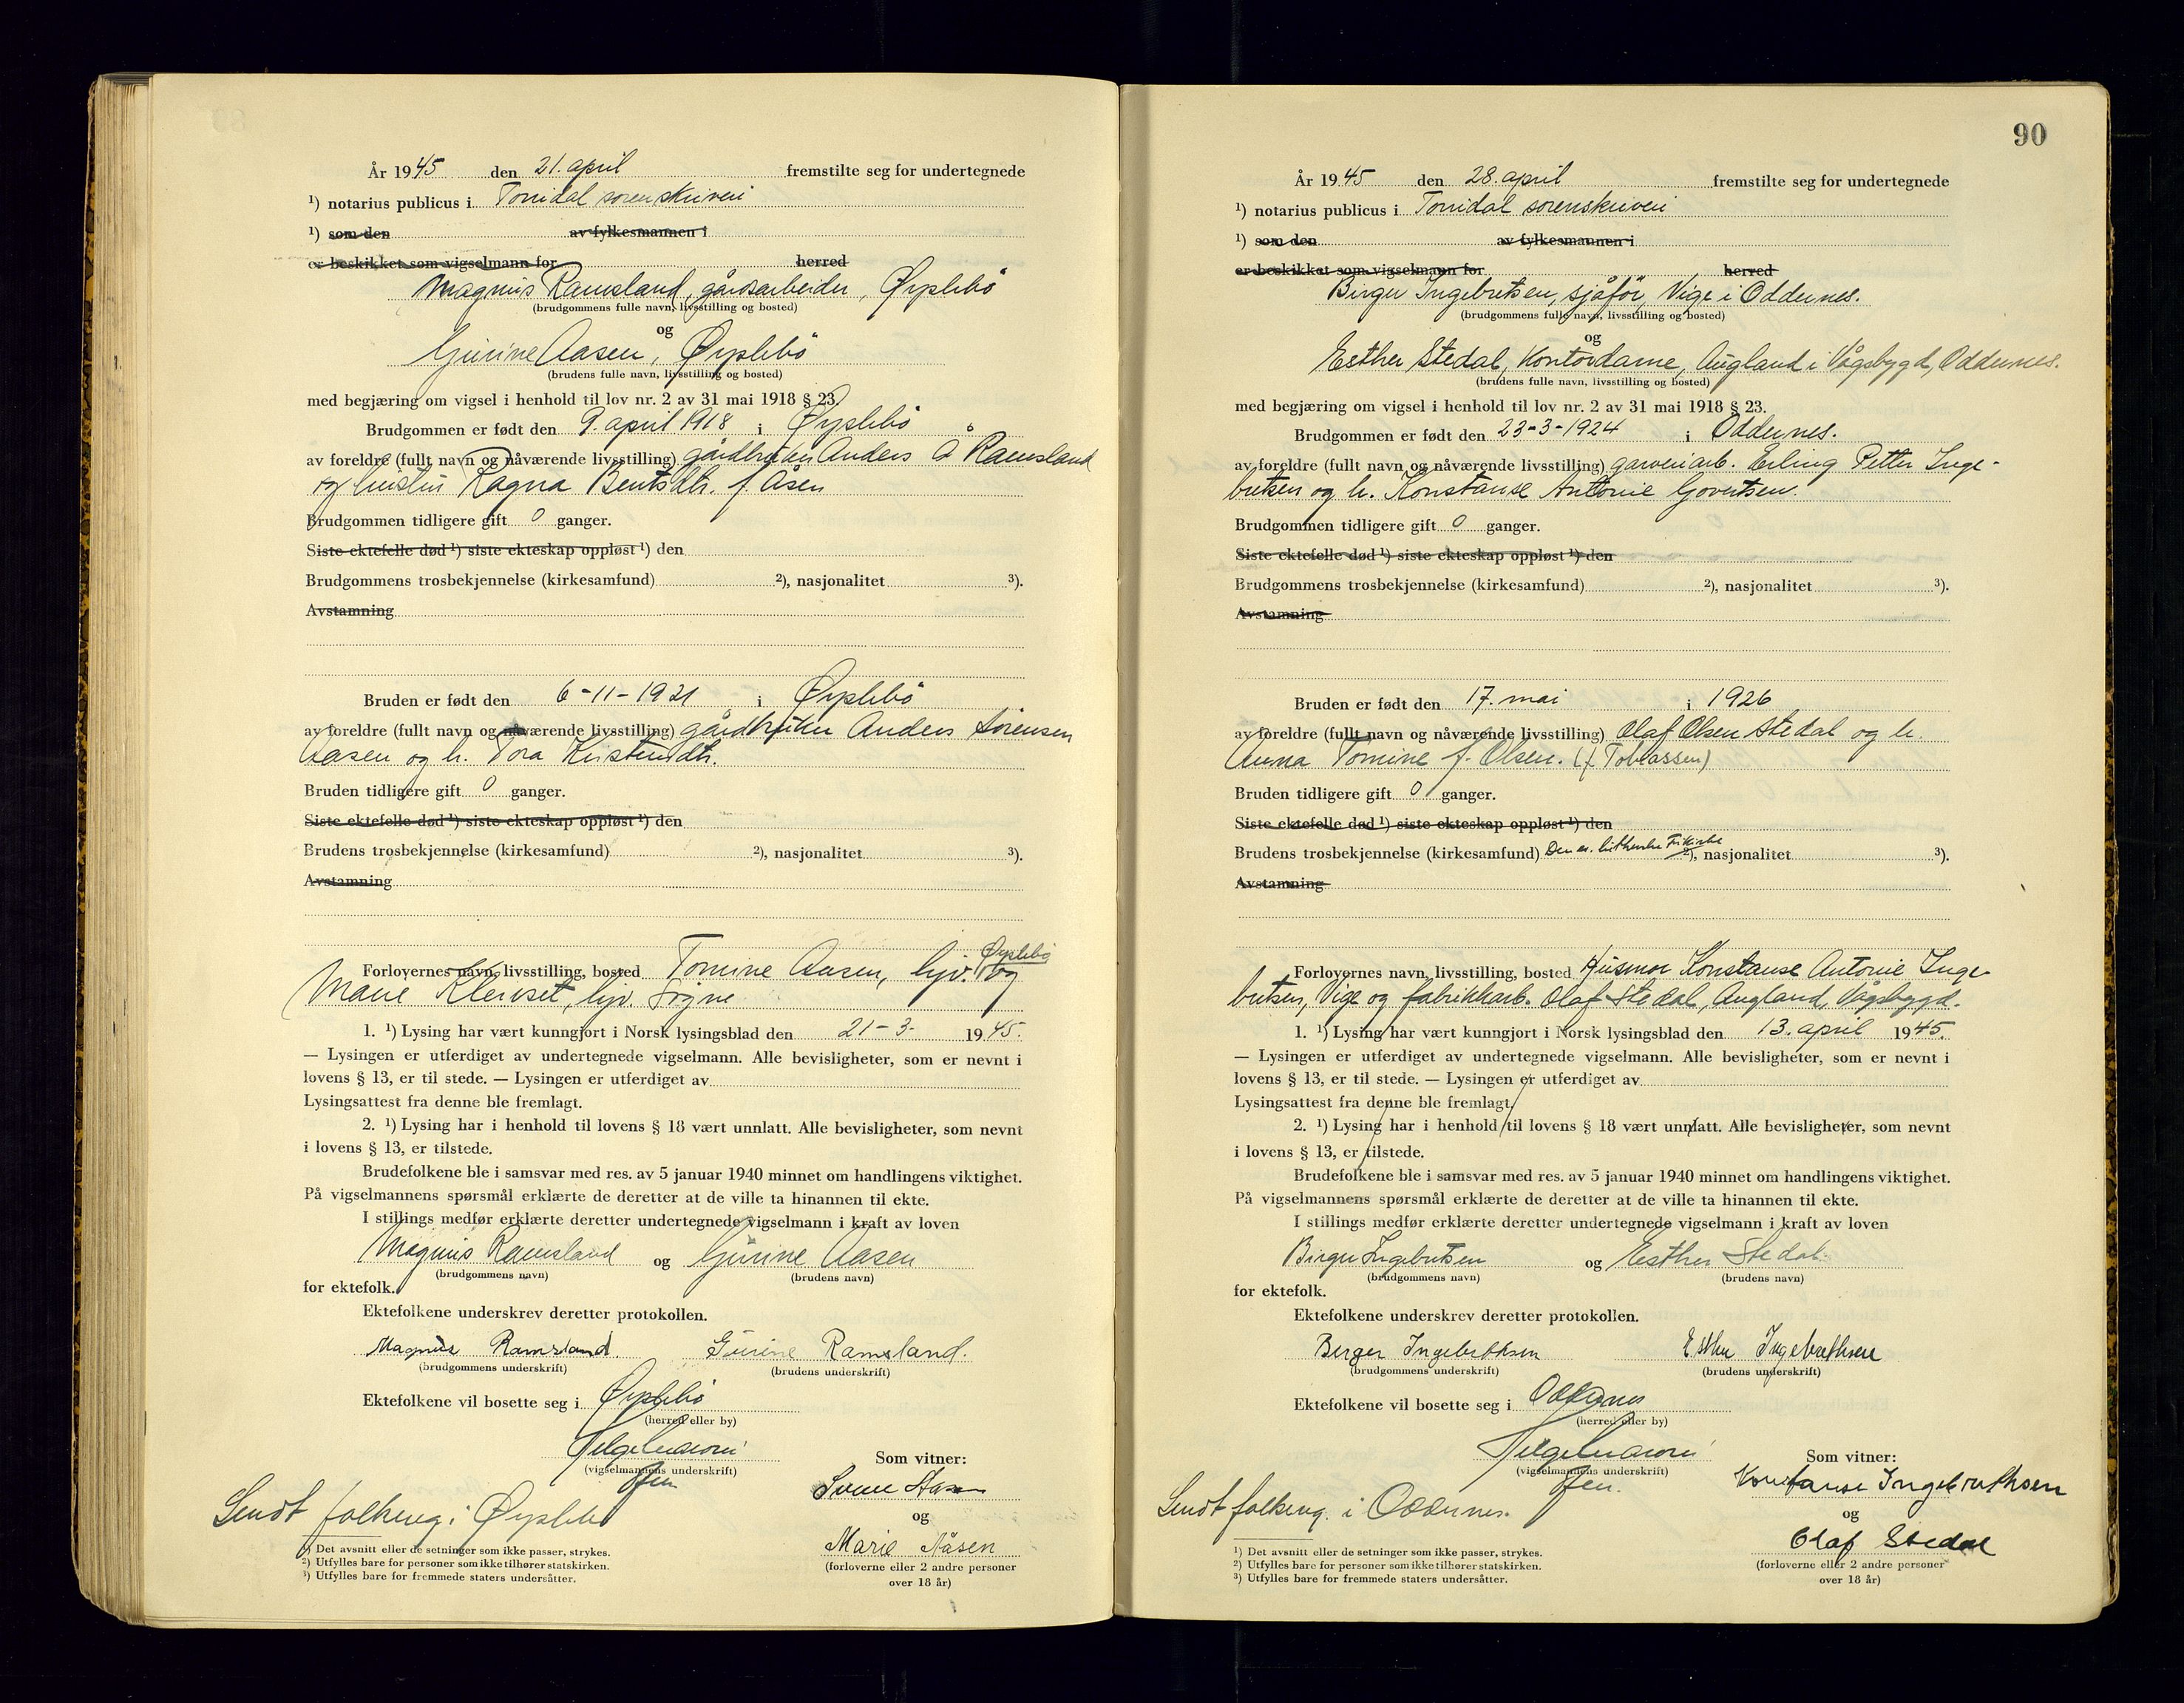 År 1945 den 21. april fremstilte seg for undertegnede
¹) notarius publicus i Torridal sorenskriveri
¹) som den av fylkesmannen i
er beskikket som vigselmann for herred
Magnus Ramsland, gårdsarbeider, Øyslebö
(brudgommens fulle navn, livsstilling og bosted)
og
Gurine Aasen, Øyslebö
(brudens fulle navn, livsstilling og bosted)
med begjæring om vigsel i henhold til lov nr. 2 av 31 mai 1918 § 23.
Brudgommen er født den 9. april 1918 i Øyslebö
av foreldre (fullt navn og nåværende livsstilling) gårdbruker Anders Å Ramsland
og hustru Ragna Bentsdtr. f. Åsen
Brudgommen tidligere gift 0 ganger.
Siste ektefelle død ¹) siste ekteskap oppløst ¹) den
Brudgommens trosbekjennelse (kirkesamfund) ²), nasjonalitet ³).
Avstamning
Bruden er født den 6-11-1921 i Øyslebö
av foreldre (fullt navn og nåværende livsstilling) gårdbruker Anders Sörensen
Aasen og h. Tora Kristendtr.
Bruden tidligere gift 0 ganger.
Siste ektefelle død ¹) siste ekteskap oppløst ¹) den
Brudens trosbekjennelse (kirkesamfund) ²), nasjonalitet ³).
Avstamning
Øyslebö
Forlovernes navn, livsstilling, bosted Tomine Aasen, hjv. og
Marie Kleivset, hjv. Søgne
1. ¹) Lysing har vært kunngjort i Norsk lysingsblad den 21-3- 1945.
— Lysingen er utferdiget av undertegnede vigselmann. Alle bevisligheter, som er nevnt i
lovens § 13, er til stede. — Lysingen er utferdiget av
Lysingsattest fra denne ble fremlagt.
2. ¹) Lysing har i henhold til lovens § 18 vært unnlatt. Alle bevisligheter, som nevnt
i lovens § 13, er tilstede.
Brudefolkene ble i samsvar med res. av 5 januar 1940 minnet om handlingens viktighet.
På vigselmannens spørsmål erklærte de deretter at de ville ta hinannen til ekte.
I stillings medfør erklærte deretter undertegnede vigselmann i kraft av loven
Magnus Ramsland og Gurine Aasen
(brudgommens navn) (brudens navn)
for ektefolk.
Ektefolkene underskrev deretter protokollen.
Magnus Ramsland. Gurine Ramsland.
(brudgommens underskrift) (brudens underskrift)
Ektefolkene vil bosette seg i Øyslebö
(herred eller by)
Som vitner:
(vigselmannens underskrift)
Sendt folkereg. i Øyslebö
og
Marie Aasen
(forloverne eller 2 andre personer
over 18 år)
¹) Det avsnitt eller de setninger som ikke passer, strykes.
²) Utfylles bare for personer som ikke tilhører statskirken.
³) Utfylles bare for fremmede staters undersåtter.
90
År 1945 den 28. april fremstilte seg for undertegnede
¹) notarius publicus i Torridal sorenskriveri
¹) som den av fylkesmannen i
er beskikket som vigselmann for herred
Birger Ingebretsen, sjåfør, Vige i Oddernes.
(brudgommens fulle navn, livsstilling og bosted)
og
Esther Stedal, Kontordame, Augland i Vågsbygd, Oddernes.
(brudens fulle navn, livsstilling og bosted)
med begjæring om vigsel i henhold til lov nr. 2 av 31 mai 1918 § 23.
Brudgommen er født den 23-3-1924 i Oddernes.
av foreldre (fullt navn og nåværende livsstilling) garveriarb. Erling Petter Inge-
bretsen og h. Konstanse Antonie Govertsen.
Brudgommen tidligere gift 0 ganger.
Siste ektefelle død ¹) siste ekteskap oppløst ¹) den
Brudgommens trosbekjennelse (kirkesamfund) ²), nasjonalitet ³).
Avstamning
Bruden er født den 17. mai i 1926
av foreldre (fullt navn og nåværende livsstilling) Olaf Olsen Stedal og h.
Anna Tomine f. Olsen. (f. Tobiassen)
Bruden tidligere gift 0 ganger.
Siste ektefelle død ¹) siste ekteskap oppløst ¹) den
Brudens trosbekjennelse (kirkesamfund) Den ev. lutherske Frikirke ²), nasjonalitet ³).
Avstamning
Forlovernes navn, livsstilling, bosted Husmor Konstanse Antonie Inge-
bretsen, Vige og fabrikkarb. Olaf Stedal, Augland, Vågsbygd.
1. ¹) Lysing har vært kunngjort i Norsk lysingsblad den 13. april 1945.
— Lysingen er utferdiget av undertegnede vigselmann. Alle bevisligheter, som er nevnt i
lovens § 13, er til stede. — Lysingen er utferdiget av
Lysingsattest fra denne ble fremlagt.
2. ¹) Lysing har i henhold til lovens § 18 vært unnlatt. Alle bevisligheter, som nevnt
i lovens § 13, er tilstede.
Brudefolkene ble i samsvar med res. av 5 januar 1940 minnet om handlingens viktighet.
På vigselmannens spørsmål erklærte de deretter at de ville ta hinannen til ekte.
I stillings medfør erklærte deretter undertegnede vigselmann i kraft av loven
Birger Ingebretsen og Esther Stedal.
(brudgommens navn) (brudens navn)
for ektefolk.
Ektefolkene underskrev deretter protokollen.
Berger Ingebrethsen Esther Ingebrethsen
(brudgommens underskrift) (brudens underskrift)
Ektefolkene vil bosette seg i Oddernes
(herred eller by)
Som vitner:
(vigselmannens underskrift)
Konstanse Ingebrethsen
Sendt folkereg. i Oddernes.
og
Olaf Stedal
(forloverne eller 2 andre personer
over 18 år)
¹) Det avsnitt eller de setninger som ikke passer, strykes.
²) Utfylles bare for personer som ikke tilhører statskirken.
³) Utfylles bare for fremmede staters undersåtter.